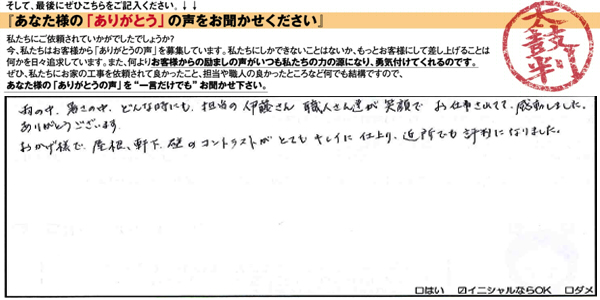 そして、最後にぜひこちらをご記入ください。↓↓
『あなた様の「ありがとう」の声をお聞かせください』
私たちにご依頼されていかがでしたでしょうか?
今、私たちはお客様から「ありがとうの声」を募集しています。私たちにしかできないことはないか、もっとお客様にして差し上げることは
何かを日々追求しています。また、何よりお客様からの励ましの声がいつも私たちの力の源になり、勇気付けてくれるのです。
ぜひ、私たちにお家の工事を依頼されて良かったこと、担当や職人の良かったところなど何でも結構ですので、
あなた様の「ありがとうの声」を“一言だけでも”お聞かせ下さい。
太鼓判
雨の中、暑さの中、どんな時にも、担当の伊藤さん 職人さん達が笑顔で お仕事されてて、感動しました。
ありがとうございます。
おかげ様で、屋根、軒下、壁のコントラストがとてもキレイに仕上り、近所でも評判になりました。
□はい ☑イニシャルならOK □ダメ